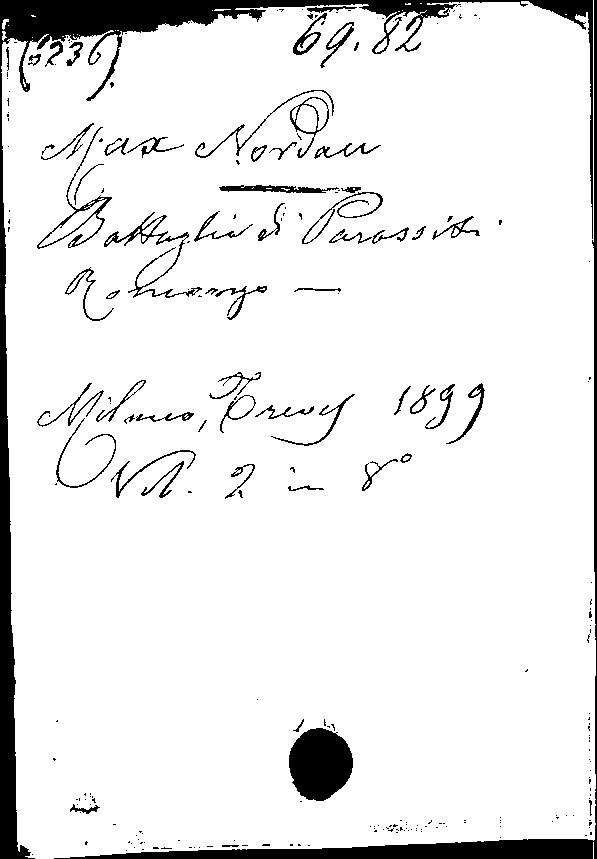 (5236). 69.82
Max Nordau
Battaglia di Parassiti.
Romanzo —
Milano, Treves 1899
Vol. 2 in 8°